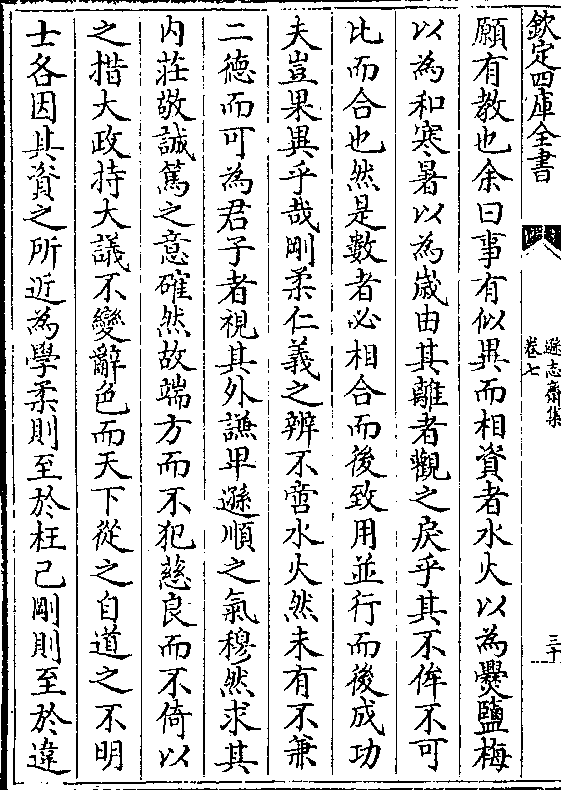 欽定四庫全書
遜志齋集
卷七
三十
願有教也余曰事有似異而相資者水火以為爨鹽梅
以為和寒暑以為歲由其離者觀之戾乎其不侔不可
比而合也然是數者必相合而後致用並行而後成功
夫豈果異乎哉剛柔仁義之辨不啻水火然未有不兼
二德而可為君子者視其外謙卑遜順之氣穆然求其
内莊敬誠篤之意確然故端方而不犯慈良而不倚以
之措大政持大議不變辭色而天下從之自道之不明
士各因其資之所近為學柔則至於枉己剛則至於違